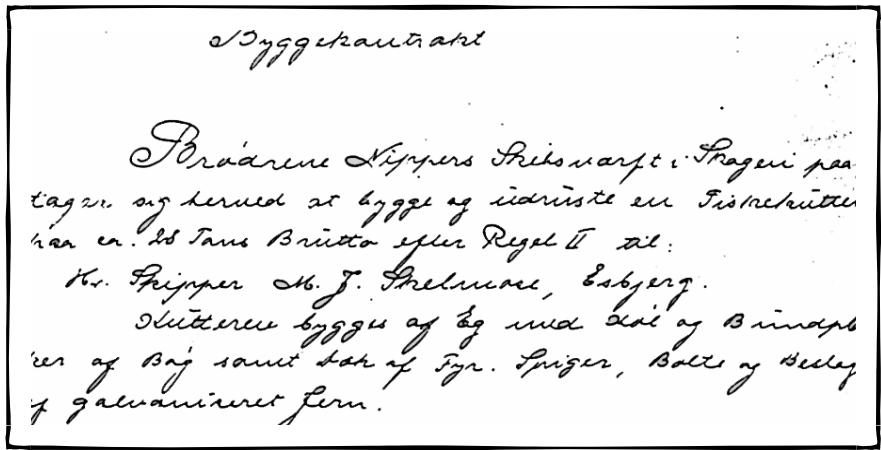 Byggekontrakt
Brødrene Nippers Skibsværft i Skagen paa
tager sig herved at bygge og udrüste en Fiskekütter
paa ca. 28 Tons Brütto efter Regel II til:
Hr. Skipper M. J. Skelmose, Esbjerg.
Kütteren bygges af Eg med Køl og Bündpl
ker af Bøg samt Dæk af Fyr. Spiger, Bolte og Beslag
af galvaniseret Jern.